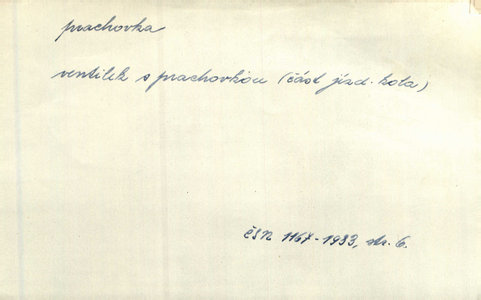 prachovka
ventilek s prachovkou (část jízd. kola)
ČSN 1167-1933, str. 6.